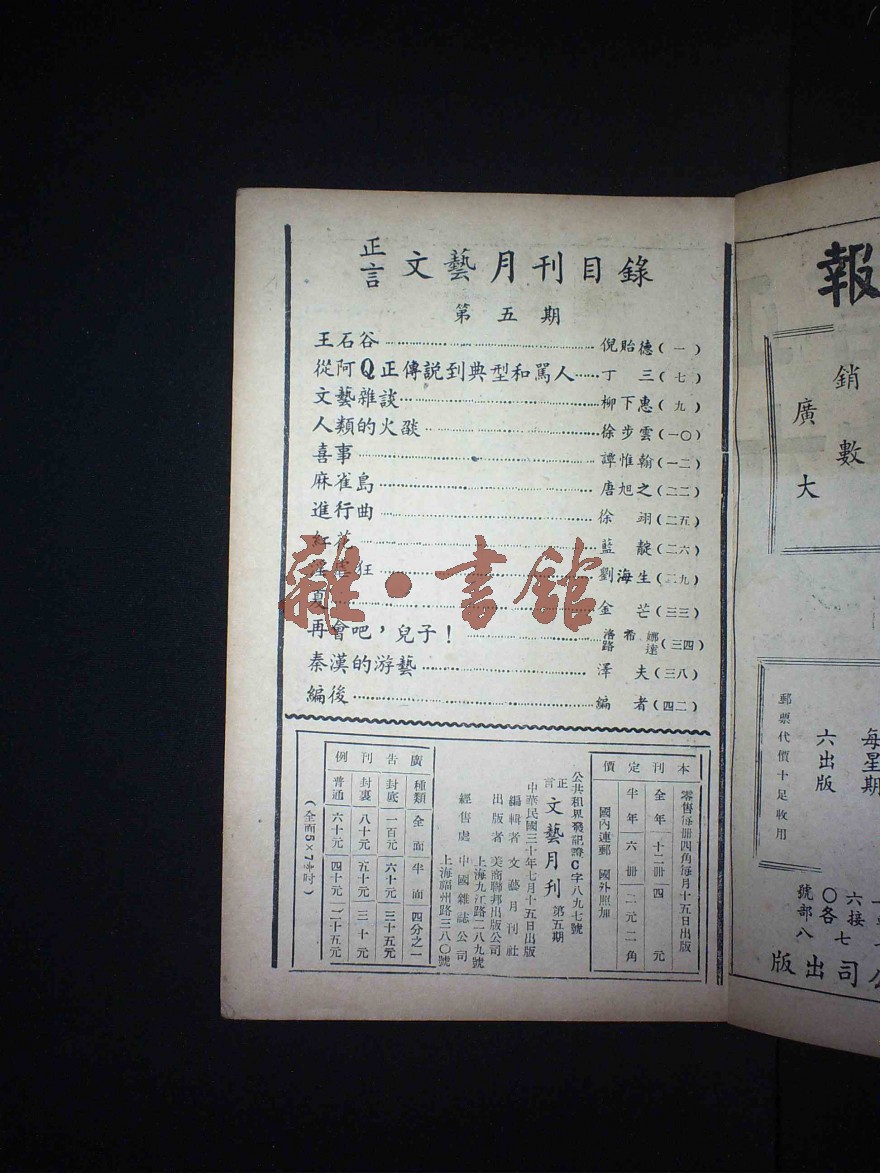 正言文藝月刊目錄
第五期
王石谷……倪貽德(一)
從阿Q正傳説到典型和罵人……丁三(七)
文藝雜談……柳下惠(九)
人類的火燄……徐步雲(一〇)
喜事……譚惟翰(一二)
麻雀島……唐旭之(二二)
進行曲……徐翊(二五)
紅花……藍靛(二六)
狂……劉海生(二九)
夏……金芒(三三)
再會吧,兒子!……洛希娜路達(三四)
秦漢的游藝……澤夫(三八)
編後……編者(四二)
雜·書館
本刊定價
零售每冊四角每月十五日出版
全年十二冊四元
半年六冊二元二角
國內連郵 國外照加
公共租界登記證C字八九七號
正言文藝月刊 第五期
中華民國三十年七月十五日出版
編輯者 文藝月刊社
出版者 美商聯邦出版公司
上海九江路二八九號
經售處 中國雜誌公司
上海福州路三八〇號
廣告刊例
種類 全面 半面 四分之一
封底 一百元 六十元 三十五元
封裏 八十元 五十元 三十元
普通 六十元 四十元 二十五元
(全面5×7吋)
報
銷數
廣大
每星期
六出版
郵票代價十足收用
六接七
〇各
號部八
公司出版